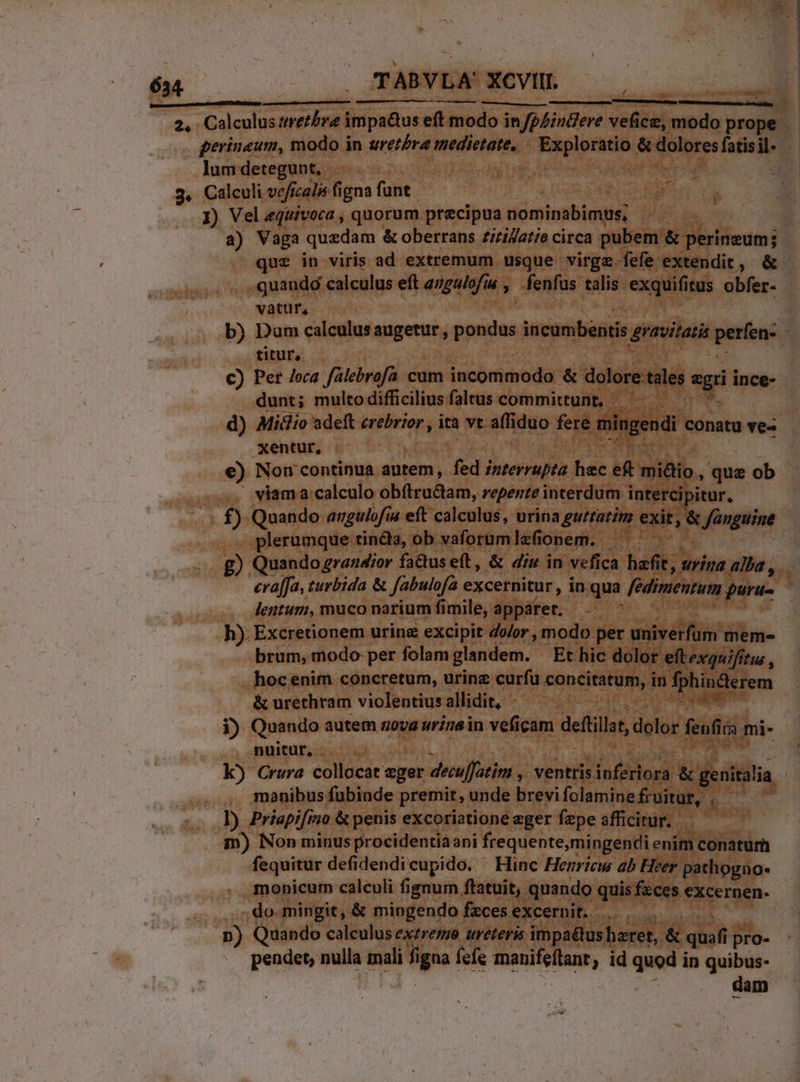 634 TABVLA XCVIII.
2. Calculus urethræ impactus est modo in sphinctere vesicæ, modo prope
perinæum, modo in urethræ medietate. Exploratio & dolores satis il-
lum detegunt.
3. Calculi vesicalis signa sunt
1) Vel æquivoca, quorum præcipua nominabimus;
a) Vaga quædam & oberrans titillatio circa pubem & perinæum;
quæ in viris ad extremum usque virgæ sese extendit, &
quando calculus est angulosus, sensus talis exquisitus obser-
vatur,
b) Dum calculus augetur, pondus incumbentis gravitatis persen-
titur.
c) Per loca salebrosa cum incommodo & dolore tales ægri ince-
dunt; multo difficilius saltus committunt.
d) Mictio adest crebrior, ita vt assiduo fere mingendi conatu ve-
xentur.
e) Non continua autem, sed interrupta hæc est mictio, quæ ob
viam a calculo obstructam, repente interdum intercipitur.
f) Quando angulosus est calculus, urina guttatim exit, & sanguine
plerumque tincta, ob vasorum læsionem.
g) Quando grandior factus est, & diu in vesica hæsit, urina alba,
crassa, turbida & sabulosa excernitur, in qua sedimentum puru-
lentum, muco narium simile, apparet.
h) Excretionem urinæ excipit dolor, modo per universum mem-
brum, modo per solam glandem. Et hic dolor est exquisitus,
hoc enim concretum, urinæ cursu concitatum, in sphincterem
& urethram violentius allidit.
i) Quando autem nova urina in vesicam destillat, dolor sensim mi-
nuitur.
k) Crura collocat æger decussatim, ventris inferiora & genitalia
manibus subinde premit, unde brevi solamine fruitur.
l) Priapismo & penis excoriatione æger sæpe afficitur.
m) Non minus procidentia ani frequente, mingendi enim conatum
sequitur desidendi cupido. Hinc Henricus ab Heer pathogno-
monicum calculi signum statuit, quando quis fæces excernen-
do mingit, & mingendo fæces excernit.
n) Quando calculus extremo ureteris impactus hæret, & quasi pro-
pendet, nulla mali signa sese manifestant, id quod in quibus-
dam